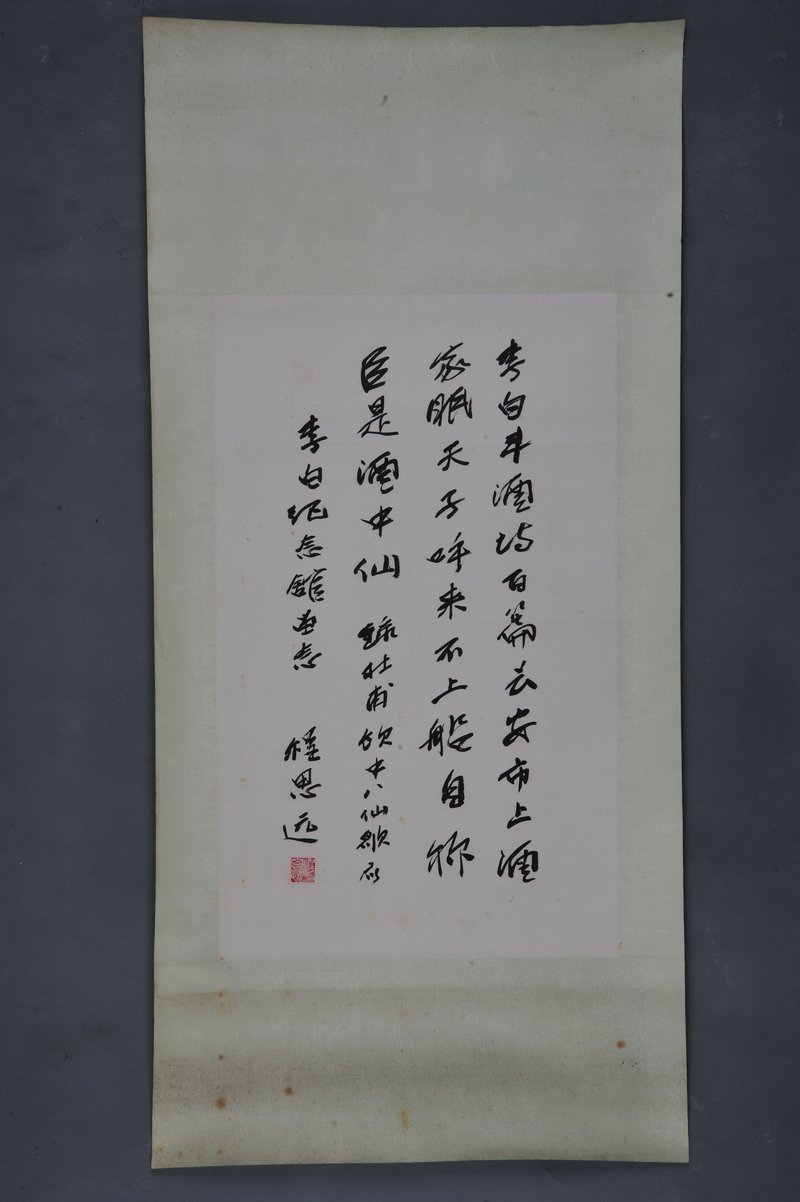 李白斗酒诗百篇长安市上酒
家眠天子呼来不上船自称
臣是酒中仙 录杜甫饮中八仙歌
李白纪念馆留念 程思远